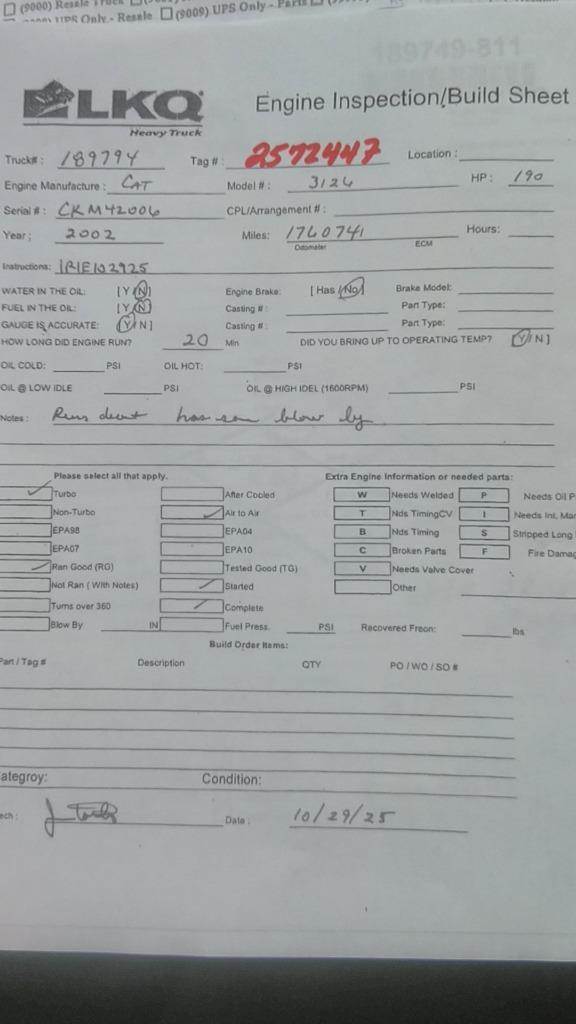 (9000) Resale Truck
UPS Only - Resale (9009) UPS Only - Parts
189749-811
LKQ Engine Inspection/Build Sheet
Heavy Truck
Truck#: 189794 Tag #: 2572447 Location:
Engine Manufacture: CAT Model #: 3126 HP: 190
Serial #: CKM42006 CPL/Arrangement #:
Year: 2002 Miles: 1760741 Hours:
Odometer ECM
Instructions: IRIE102925
WATER IN THE OIL: [Y/N] Engine Brake: [Has/No] Brake Model:
FUEL IN THE OIL: [Y/N] Casting #: Part Type:
GAUGE IS ACCURATE: [Y/N] Casting #: Part Type:
HOW LONG DID ENGINE RUN? 20 Min DID YOU BRING UP TO OPERATING TEMP? [Y/N]
OIL COLD: PSI OIL HOT: PSI
OIL @ LOW IDLE PSI OIL @ HIGH IDEL (1600RPM) PSI
Notes: Runs decent has som blow by
Please select all that apply. Extra Engine Information or needed parts:
Turbo After Cooled W Needs Welded P Needs Oil P
Non-Turbo Air to Air T Nds TimingCV I Needs Int. Man
EPA98 EPA04 B Nds Timing S Stripped Long
EPA07 EPA10 C Broken Parts F Fire Damag
Ran Good (RG) Tested Good (TG) V Needs Valve Cover
Not Ran (With Notes) Started Other
Turns over 360 Complete
Blow By IN Fuel Press. PSI Recovered Freon: lbs
Build Order Items:
Part / Tag # Description QTY PO / WO / SO #
ategroy: Condition:
ech: Date: 10/29/25